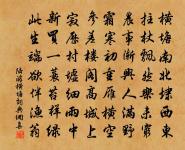 橫塘南北埭西東
拄杖飄然樂未窮
農事漸興人滿野
霜寒初重雁橫空
參差樓閣高城上
寂歷村墟細雨中
新買一蓑苔樣綠
此生端欲伴漁翁
陸游橫塘詞典網集